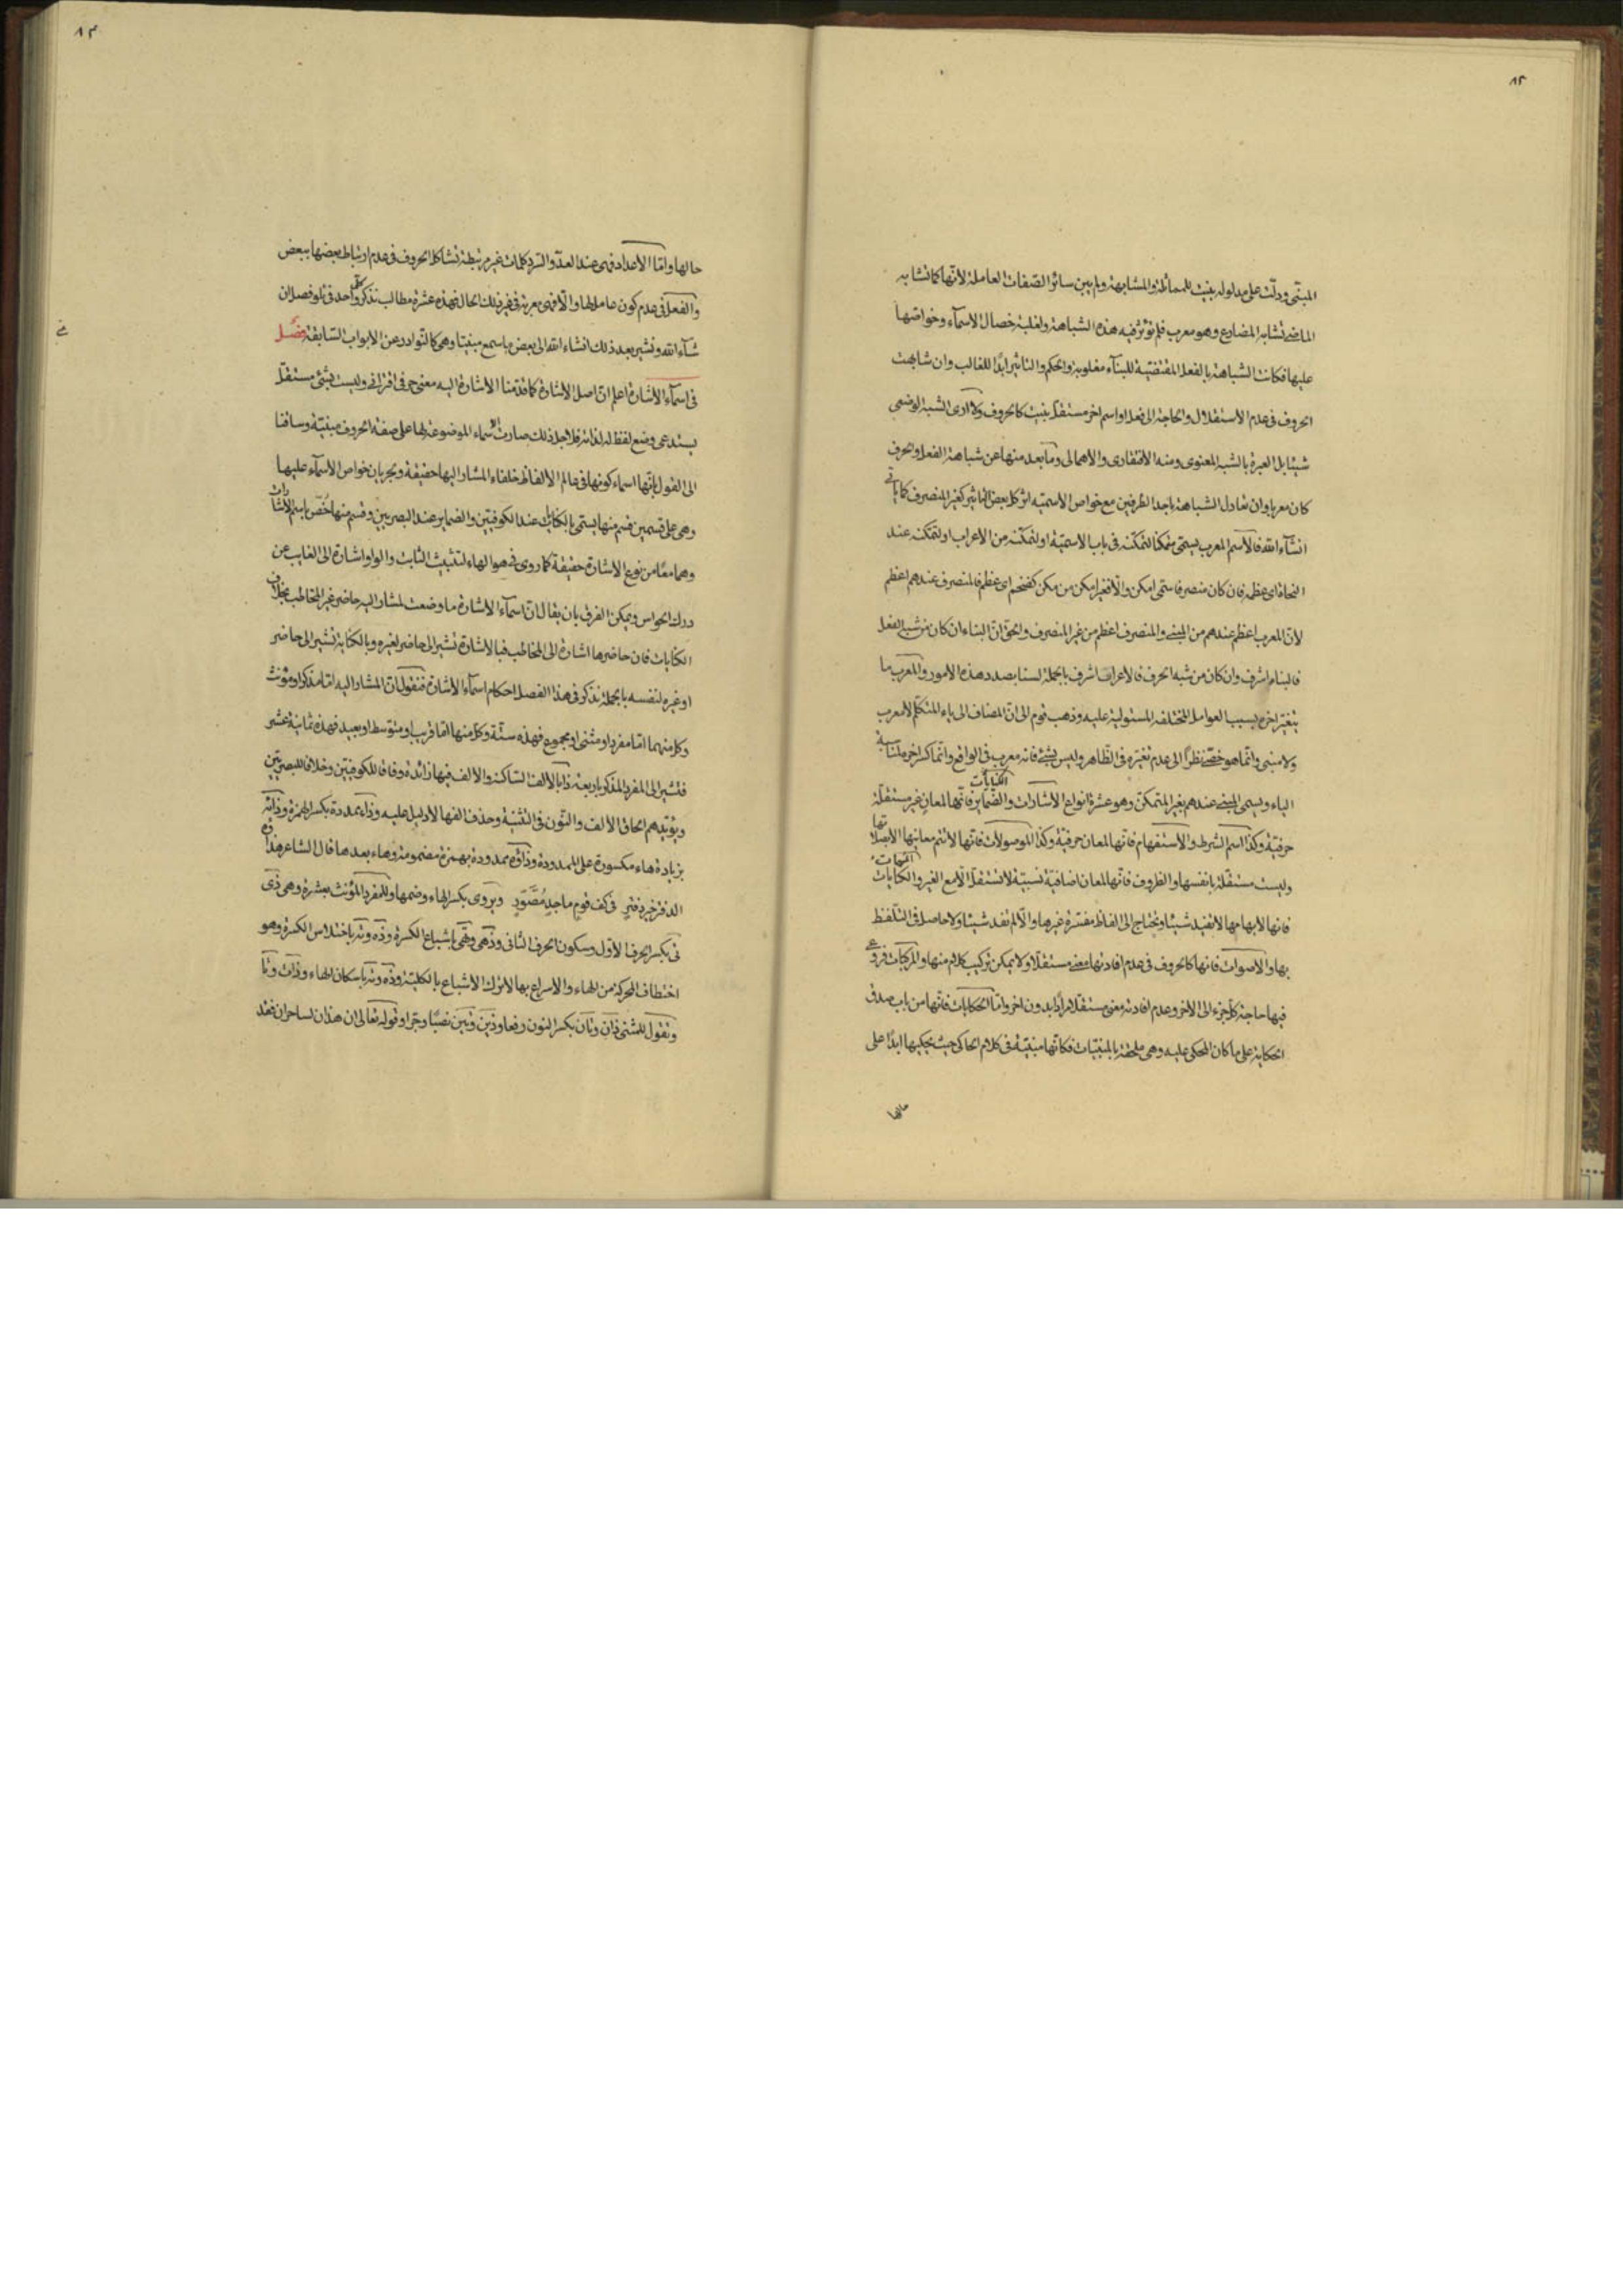 ٨٢
المبنى ودلت على مدلوله بنيت للمماثلة والمشابهة ولم يبن سائر الصفات العاملة لانها كما تشابه
الماضى تشابه المضارع وهو معرب فلم تؤثر فيه هذه الشباهة ولغلبة خصال الاسماء وخواصها
عليها فكانت الشباهة بالفعل المقتضية للبناء مغلوبة والحكم والتاثير ابدًا للغالب وان شابهت
الحروف فى عدم الاستقلال والحاجة الى فعل او اسم اخر مستقل بنيت كالحروف ولا ارى الشبه الوضعى
شيئا بل العبرة بالشبه المعنوى ومنه الافتقارى والاهمالى وما بعد منها عن شباهة الفعل والحرف
كان معربا وان تعادل الشباهة باحد الطرفين مع خواص الاسمية اثر كل بعض التاثير كغير المنصرف كما ياتى
انشاء الله فالاسم المعرب يسمى متمكنا لتمكنه فى باب الاسمية او لتمكنه من الاعراب او لتمكنه عند
النحاة اى عظمه فان كان منصرفا سمى امكن والا فغير امكن من مكن كفخم اى عظم فالمنصرف عندهم اعظم
لان المعرب اعظم عندهم من المبنى والمنصرف اعظم من غير المنصرف والحق ان البناء ان كان من شبه الفعل
فالبناء اشرف وان كان من شبه الحرف فالاعراب اشرف بالجملة لسنا بصدد هذه الامور والمعرب ما
يتغير اخره بسبب العوامل المختلفة المستولية عليه وذهب قوم الى ان المضاف الى ياء المتكلم لا معرب
ولا مبنى وانما هو خصى نظرًا الى عدم تغيره فى الظاهر وليس بشئ فانه معرب فى الواقع وانما كسر اخره لمناسبة
الياء ويسمى المبنى عندهم بغير المتمكن وهو عشرة انواع الاشارات والكنايات والضماير فانها لمعان غير مستقلة
حرفية وكذا اسم الشرط والاستفهام فانها لمعان حرفية وكذا الموصولات فانها لا تتم معانيها الا بصلاتها
وليست مستقلة بانفسها والظروف فانها لمعان اضافية نسبية لا تستقل الا مع الغير والكنايات المبهمات
فانها لابهامها لا تفيد شيئا وتحتاج الى الفاظ مفسرة غيرها والا لم تفد شيئا ولا حاصل فى التلفظ
بها والاصوات فانها كالحروف فى عدم افادتها معنى مستقلا ولا يمكن تركيب كلام منها والمركبات فروع
فيها حاجة كل جزء الى الاخر وعدم افادته معنى مستقلا مرادًا بدون اخر واما الحكايات فانها من باب صدق
الحكاية على ما كان المحكى عليه وهى ملحقة بالمبنيات فكانها مبنية فى كلام الحاكى حيث يحكيها ابدًا على
حالها
٨٣
حالها واما الاعداد فهى عند العد والسرد كلمات غير مرتبطة تشاكل الحروف فى عدم ارتباط بعضها ببعض
والفعل فى عدم كون عامل لها والا فهى معربة فى غير ذلك الحال فهذه عشرة مطالب نذكر كل واحد فى تلو فصل ان
شاء الله ونشير بعد ذلك انشاء الله الى بعض ما سمع مبنيا وهى كالنوادر عن الابواب السابقة فصل
فى اسماء الاشارة اعلم ان اصل الاشارة كما قدمنا الاشارة اليه معنى حرفى اقترانى وليست بشئ مستقل
يستدعى وضع لفظ له لذاته فلاجل ذلك صارت الاسماء الموضوعة لها على صفة الحروف مبنية وساقنا
الى القول بانها اسماء كونها فى عالم الالفاظ خلفاء المشار اليها حقيقة وجريان خواص الاسماء عليها
وهى على قسمين قسم منها يسمى بالكنايات عند الكوفيين والضماير عند البصريين وقسم منها خص باسم الاشارات
وهما معًا من نوع الاشارة حقيقة كما روى فى هو الهاء لتثبيت الثابت والواو اشارة الى الغايب عن
درك الحواس ويمكن الفرق بان يقال ان اسماء الاشارة ما وضعت لمشار اليه حاضر غير المخاطب بخلاف
الكنايات فان حاضرها اشارة الى المخاطب فبالاشارة تشير الى حاضر لغيره وبالكناية تشير الى حاضر
او غيره لنفسه بالجملة نذكر فى هذا الفصل احكام اسماء الاشارة فنقول ان المشار اليه اما مذكر او مؤنث
وكل منهما اما مفرد او مثنى او مجموع فهذه ستة وكل منها اما قريب او متوسط او بعيد فهذه ثمانية عشر
فتشير الى المفرد المذكر باربعة ذا بالالف الساكنة والالف فيها زائدة وفاقا للكوفيين وخلافا للبصريين
ويؤيدهم الحاق الالف والنون فى التثنية وحذف الفها لا دليل عليه وذاء ممدودة بكسر الهمزة وذائه
بزيادة هاء مكسورة على الممدودة وذاؤه ممدودة بهمزة مضمومة وهاء بعدها قال الشاعر هذاؤه
الدفتر خير دفتر فى كف قوم ماجد مصور ويروى بكسر الهاء وضمها وللمفرد المؤنث بعشرة وهى ذى
تى بكسر الحرف الاول وسكون الحرف الثانى وذهى وتهى باشباع الكسرة وذه وته باختلاس الكسرة وهو
اختطاف الحركة من الهاء والاسراع بها لا ترك الاشباع بالكلية وذه وته باسكان الهاء وذات وتا
وتقول للمثنى ذان وتان بكسر النون رفعا وذين وتين نصبًا وجرا وقوله تعالى ان هذان لساحران فقد